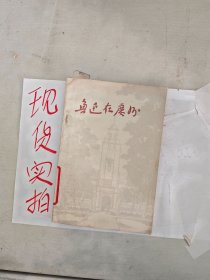 现货实拍
鲁迅在广州